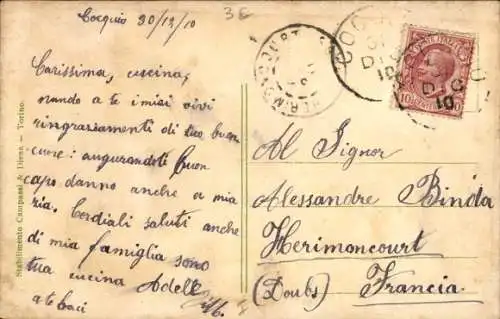 Cocquio 30/12/10
36
Carissima, cucina,
nando a te i miei vivi
ringraziamenti di tuo buon
cuore: augurandoti buon
capo danno anche a mia
ria. Cordiali saluti anche
di mia famiglia sono
tua cucina Adell
a te baci
Al Signor
Alessandre Binda
Herimoncourt
(Doubs) Francia
Stabilimento Campassi & Diena. — Torino.
POSTE ITALIANE